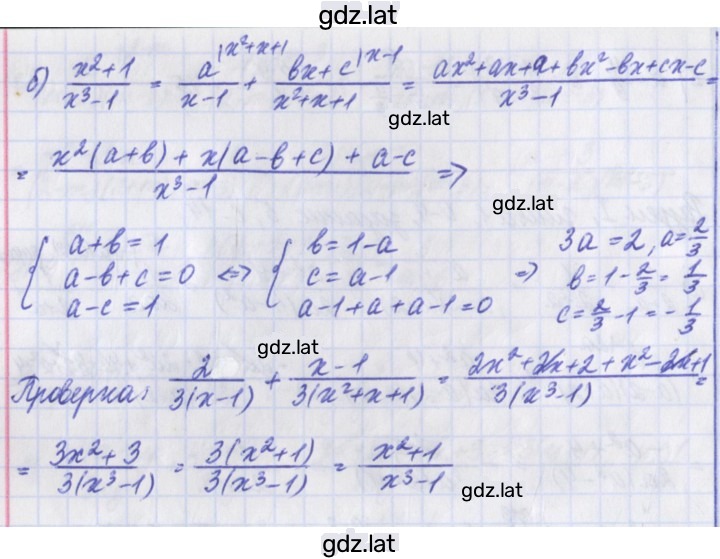 gdz.lat
б) (x²+1)/(x³-1) = a|x²+x+1/(x-1) + bx+c|x-1/(x²+x+1) = (ax²+ax+a+bx²-bx+cx-c)/(x³-1) =
gdz.lat
= (x²(a+b)+x(a-b+c)+a-c)/(x³-1) =>
gdz.lat
{ a+b=1 { b=1-a 3a=2, a=2/3
{ a-b+c=0 <=> { c=a-1 => b=1-2/3=1/3
{ a-c=1 { a-1+a+a-1=0 c=2/3-1=-1/3
gdz.lat
Проверка: 2/(3(x-1)) + (x-1)/(3(x²+x+1)) = (2x²+2x+2+x²-2x+1)/(3(x³-1)) =
= (3x²+3)/(3(x³-1)) = (3(x²+1))/(3(x³-1)) = (x²+1)/(x³-1)
gdz.lat
gdz.lat